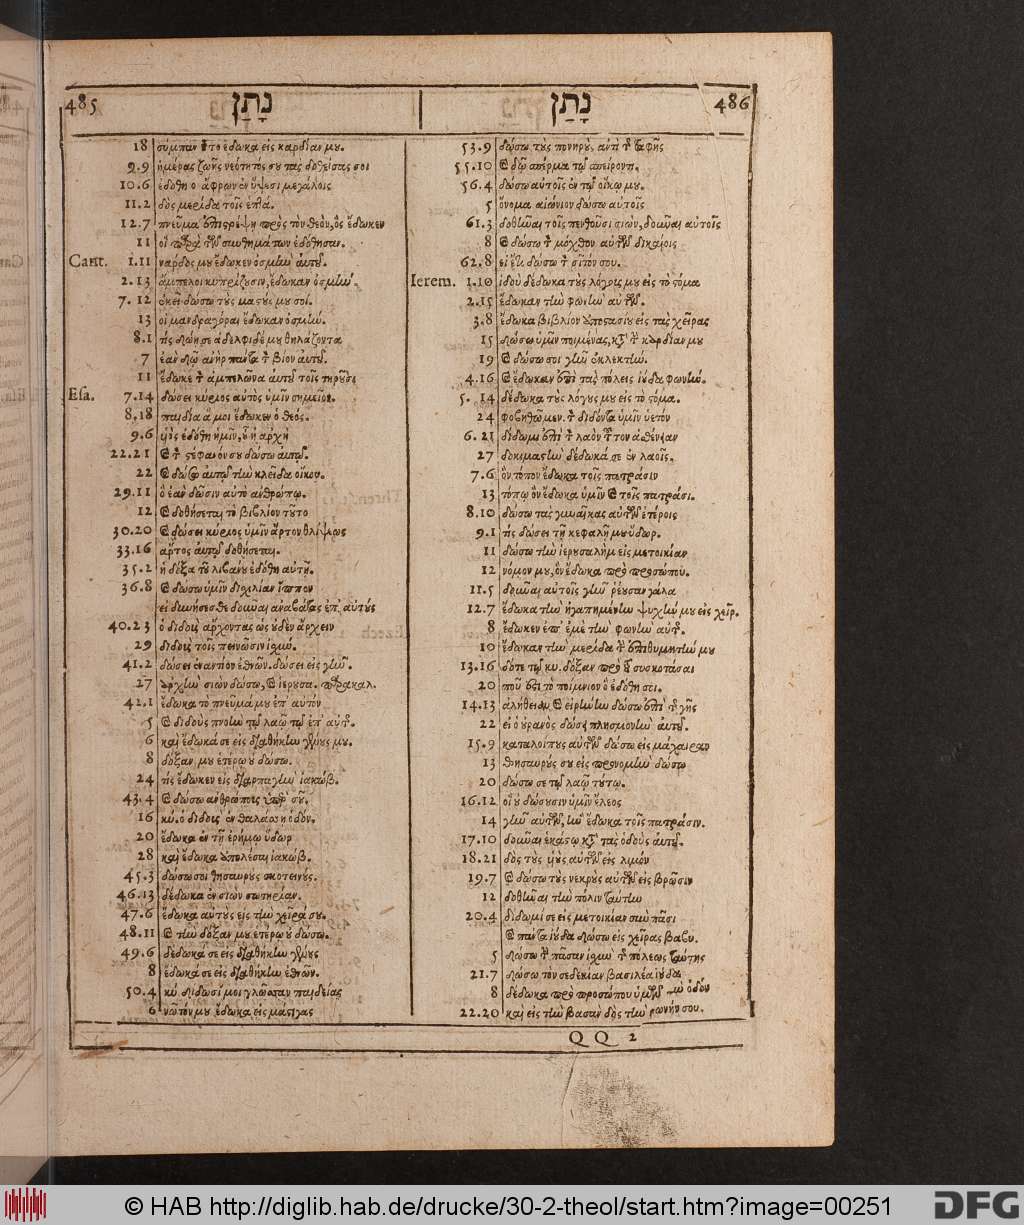 485 נָתַן
18 σύμπαν τοῦτο ἔδωκα εἰς καρδίαν μου.
9.9 ἡμέρας ζωῆς νεότητός σου τὰς δοθείσας σοι
10.6 ἐδόθη ὁ ἄφρων ἐν ὕψεσι μεγάλοις
11.2 δὸς μερίδα τοῖς ἑπτά.
12.7 πνεῦμα ἐπιστρέψῃ πρὸς τὸν θεὸν, ὃς ἔδωκεν
11 οἳ παρὰ τῶν συνθημάτων ἐδόθησαν.
Cant. 1.11 νάρδος μου ἔδωκεν ὀσμὴν αὐτοῦ.
2.13 ἄμπελοι κυπρίζουσιν, ἔδωκαν ὀσμήν.
7.12 ἐκεῖ δώσω τοὺς μαστούς μου σοί.
13 οἱ μανδραγόραι ἔδωκαν ὀσμήν.
8.1 τίς δώῃ σε ἀδελφιδέ μου θηλάζοντα
7 ἐὰν δῷ ἀνὴρ πάντα τὸν βίον αὐτοῦ.
11 ἔδωκε τὸν ἀμπελῶνα αὐτοῦ τοῖς τηροῦσι
Esa. 7.14 δώσει κύριος αὐτὸς ὑμῖν σημεῖον.
8.18 παιδία ἅ μοι ἔδωκεν ὁ θεός.
9.6 υἱὸς ἐδόθη ἡμῖν, οὗ ἡ ἀρχὴ
22.21 καὶ τὸν στέφανόν σου δώσω αὐτῷ.
22 καὶ δώσω αὐτῷ τὴν κλεῖδα οἴκου.
29.11 ὃ ἐὰν δῶσιν αὐτὸ ἀνθρώπῳ.
12 καὶ δοθήσεται τὸ βιβλίον τοῦτο
30.20 καὶ δώσει κύριος ὑμῖν ἄρτον θλίψεως
33.16 ἄρτος αὐτῷ δοθήσεται.
35.2 ἡ δόξα τοῦ λιβάνου ἐδόθη αὐτῇ.
36.8 καὶ δώσω ὑμῖν δισχιλίαν ἵππον
εἰ δυνήσεσθε δοῦναι ἀναβάτας ἐπ' αὐτούς
40.23 ὁ διδοὺς ἄρχοντας ὡς οὐδὲν ἄρχειν
29 διδοὺς τοῖς πεινῶσιν ἰσχύν.
41.2 δώσει ἐναντίον ἐθνῶν. δώσει εἰς γῆν.
27 ἀρχὴν σιὼν δώσω, καὶ ἱερουσα. παρακαλ.
42.1 ἔδωκα τὸ πνεῦμά μου ἐπ' αὐτόν
5 καὶ διδοὺς πνοὴν τῷ λαῷ τῷ ἐπ' αὐτῆς.
6 καὶ ἔδωκά σε εἰς διαθήκην γένους μου.
8 δόξαν μου ἑτέρῳ οὐ δώσω.
24 τίς ἔδωκεν εἰς διαρπαγὴν ἰακώβ.
43.4 καὶ δώσω ἀνθρώπους ὑπὲρ σοῦ.
16 κύ. ὁ διδοὺς ἐν θαλάσσῃ ὁδόν.
20 ἔδωκα ἐν τῇ ἐρήμῳ ὕδωρ
28 καὶ ἔδωκα ἀπολέσαι ἰακώβ.
45.3 δώσω σοι θησαυροὺς σκοτεινούς.
46.13 δέδωκα ἐν σιὼν σωτηρίαν.
47.6 ἔδωκα αὐτοὺς εἰς τὴν χεῖρά σου.
48.11 καὶ τὴν δόξαν μου ἑτέρῳ οὐ δώσω.
49.6 δέδωκά σε εἰς διαθήκην γένους
8 ἔδωκά σε εἰς διαθήκην ἐθνῶν.
50.4 κύ. δίδωσί μοι γλῶσσαν παιδείας
6 νῶτόν μου ἔδωκα εἰς μάστιγας
נָתַן 486
53.9 δώσω τοὺς πονηροὺς, ἀντὶ τῆς ταφῆς
55.10 καὶ δῷ σπέρμα τῷ σπείροντι.
56.4 δώσω αὐτοῖς ἐν τῷ οἴκῳ μου.
5 ὄνομα αἰώνιον δώσω αὐτοῖς
61.3 δοθῆναι τοῖς πενθοῦσι σιὼν, δοῦναι αὐτοῖς
8 καὶ δώσω τὸν μόχθον αὐτῶν δικαίοις
62.8 εἰ ἔτι δώσω τὸν σῖτόν σου.
Ierem. 1.10 ἰδοὺ δέδωκα τοὺς λόγους μου εἰς τὸ στόμα
2.15 ἔδωκαν τὴν φωνὴν αὐτῶν.
3.8 ἔδωκα βιβλίον ἀποστασίου εἰς τὰς χεῖρας
15 δώσω ὑμῖν ποιμένας, κατὰ τὴν καρδίαν μου
19 καὶ δώσω σοι γῆν ἐκλεκτήν.
4.16 καὶ ἔδωκαν ἐπὶ τὰς πόλεις ἰούδα φωνήν.
5. 14 δέδωκα τοὺς λόγους μου εἰς τὸ στόμα.
24 φοβηθῶμεν. τὸν διδόντα ὑμῖν ὑετόν
6.21 δίδωμι ἐπὶ τὸν λαὸν τοῦτον ἀσθένειαν
27 δοκιμαστὴν δέδωκά σε ἐν λαοῖς.
7.6 ὃν τόπον ἔδωκα τοῖς πατράσιν
13 τόπῳ ὃν ἔδωκα ὑμῖν καὶ τοῖς πατράσι.
8.10 δώσω τὰς γυναῖκας αὐτῶν ἑτέροις
9.1 τίς δώσει τῇ κεφαλῇ μου ὕδωρ.
11 δώσω τὴν ἱερουσαλὴμ εἰς μετοικίαν
12 νόμον μου, ὃν ἔδωκα πρὸ προσώπου.
11.5 δοῦναι αὐτοῖς γῆν ῥέουσαν γάλα
12.7 ἔδωκα τὴν ἠγαπημένην ψυχήν μου εἰς χεῖρ.
8 ἔδωκεν ἐπ' ἐμὲ τὴν φωνὴν αὐτῆς.
10 ἔδωκαν τὴν μερίδα τὴν ἐπιθυμητήν μου
13.16 δότε τῷ κυ. δόξαν πρὸ τοῦ συσκοτάσαι
20 ποῦ ἐστι τὸ ποίμνιον ὃ ἐδόθη σοι.
14.13 ἀλήθειαν καὶ εἰρήνην δώσω ἐπὶ τῆς γῆς
22 εἰ ὁ οὐρανὸς δώσει πλησμονὴν αὐτοῦ.
15.9 καταλοίπους αὐτῶν δώσω εἰς μάχαιραν
13 θησαυρούς σου εἰς προνομὴν δώσω
20 δώσω σε τῷ λαῷ τούτῳ.
16.12 οἳ οὐ δώσουσιν ὑμῖν ἔλεος
14 γῆν αὐτῶν, ἣν ἔδωκα τοῖς πατράσιν.
17.10 δοῦναι ἑκάστῳ κατὰ τὰς ὁδοὺς αὐτοῦ.
18.21 δὸς τοὺς υἱοὺς αὐτῶν εἰς λιμόν
19.7 καὶ δώσω τοὺς νεκροὺς αὐτῶν εἰς βρῶσιν
12 δοθῆναι τὴν πόλιν ταύτην
20.4 δίδωμί σε εἰς μετοικίαν σὺν πᾶσι
καὶ πάντα ἰούδα δώσω εἰς χεῖρας βαβυ.
5 δώσω τὴν πᾶσαν ἰσχὺν τῆς πόλεως ταύτης
21.7 δώσω τὸν σεδεκίαν βασιλέα ἰούδα
8 δέδωκα πρὸ προσώπου ὑμῶν τὴν ὁδόν
22.20 καὶ εἰς τὴν βασὰν δὸς τὴν φωνήν σου.
QQ 2
© HAB http://diglib.hab.de/drucke/30-2-theol/start.htm?image=00251
DFG